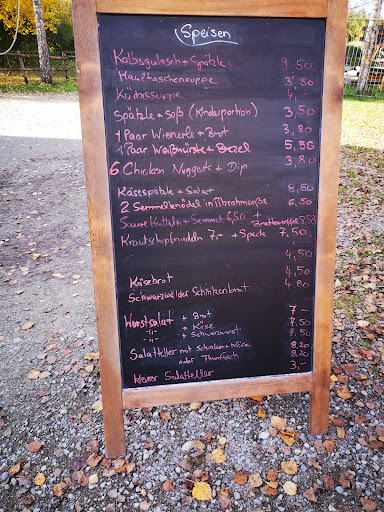 Speisen
Kalbsgulasch + Spätzle 9,50
Maultaschensuppe 3,50
Kürbissuppe 4,-
Spätzle + Soß (Kinderportion) 3,50
1 Paar Wienerle + Brot 3,80
1 Paar Weißwürste + Brezel 5,50
6 Chicken Nuggets + Dip 3,80
Käsespätzle + Salat 8,50
2 Semmelknödel in Pilzrahmsoße 6,50
Saure Kutteln + Semmel 6,50 + Bratkartoffel 8,50
Krautschupfnudeln 7,- + Speck 7,50
4,50
Käsebrot 4,50
Schwarzwälder Schinkenbrot 4,80
Wurstsalat + Brot 7,-
-"- + Käse 7,50
-"- + Schwarzwurst 7,50
Salatteller mit Schinken + Käse 8,20
oder Thunfisch 8,20
kleiner Salatteller 3,-